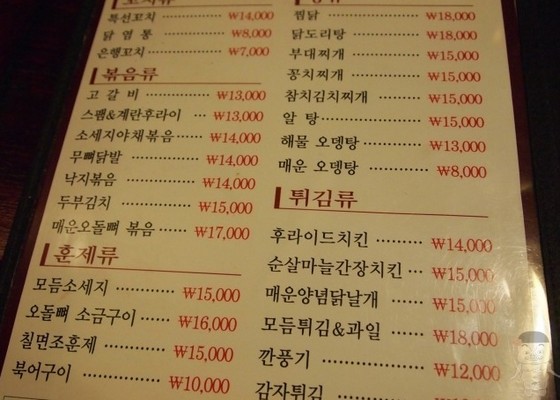 꼬치류
특선꼬치 ₩14,000
닭 염 통 ₩8,000
은행꼬치 ₩7,000
볶음류
고 갈 비 ₩13,000
스팸&계란후라이 ₩13,000
소세지야채볶음 ₩14,000
무뼈닭발 ₩14,000
낙지볶음 ₩14,000
두부김치 ₩15,000
매운오돌뼈 볶음 ₩17,000
훈제류
모듬소세지 ₩15,000
오돌뼈 소금구이 ₩16,000
칠면조훈제 ₩15,000
북어구이 ₩10,000
찜닭 ₩18,000
닭도리탕 ₩18,000
부대찌개 ₩15,000
꽁치찌개 ₩15,000
참치김치찌개 ₩15,000
알 탕 ₩15,000
해물 오뎅탕 ₩13,000
매운 오뎅탕 ₩8,000
튀김류
후라이드치킨 ₩14,000
순살마늘간장치킨 ₩15,000
매운양념닭날개 ₩15,000
모듬튀김&과일 ₩18,000
깐풍기 ₩12,000
감자튀김